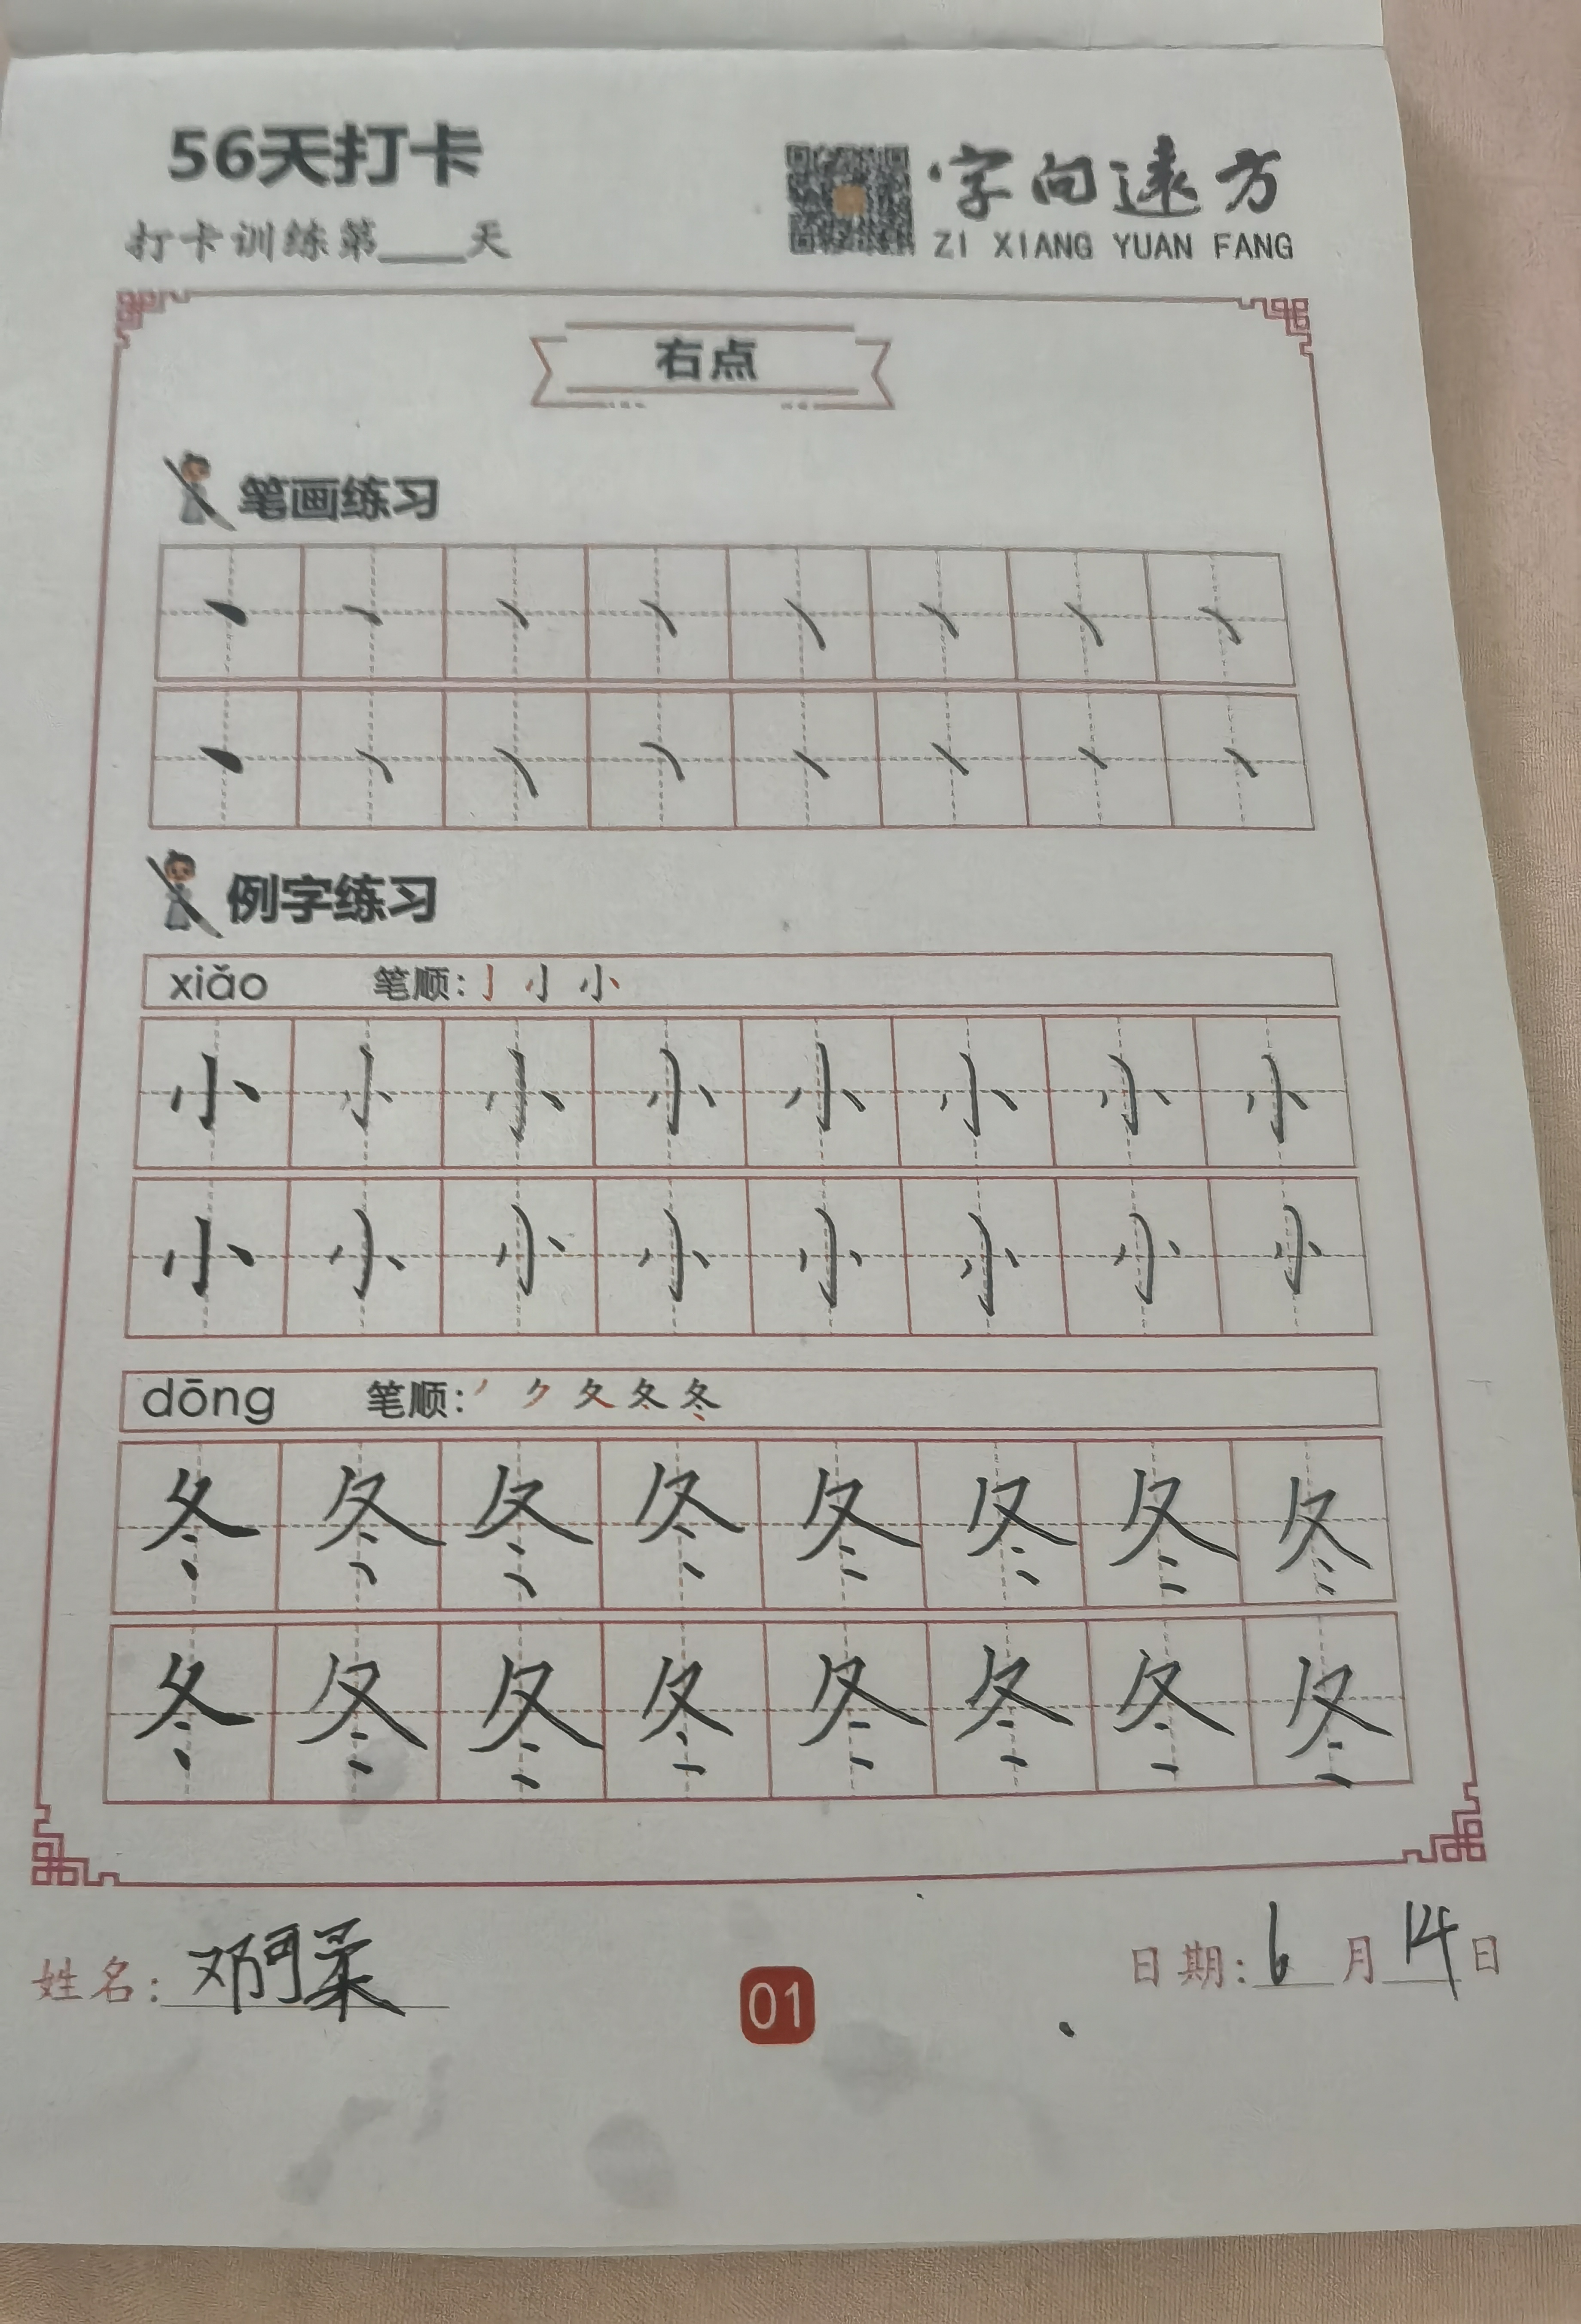 56天打卡
打卡训练第____天
字向远方
ZI XIANG YUAN FANG
右点
笔画练习
丶 丶 丶 丶 丶 丶 丶 丶
丶 丶 丶 丶 丶 丶 丶 丶
例字练习
xiǎo 笔顺: 亅 小 小
小 小 小 小 小 小 小 小
小 小 小 小 小 小 小 小
dōng 笔顺: 丿 ク 夂 冬 冬
冬 冬 冬 冬 冬 冬 冬 冬
冬 冬 冬 冬 冬 冬 冬 冬
姓名: 邓门柔
01
日期: 6 月 14 日